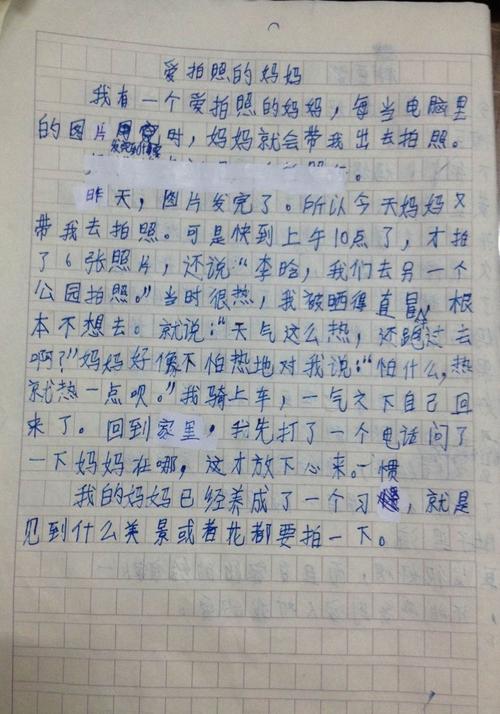 爱拍照的妈妈
我有一个爱拍照的妈妈，每当电脑里
的图片用完时，妈妈就会带我出去拍照。
发完到博客
昨天，图片发完了。所以今天妈妈又
带我去拍照。可是快到上午10点了，才拍
了6张照片，还说“李晗，我们去另一个
公园拍照。”当时很热，我被晒得直冒，根
本不想去。就说：“天气这么热，还跑过去
啊？”妈妈好像不怕热地对我说：“怕什么，热
就热一点呗。”我骑上车，一气之下自己回
来了。回到家里，我先打了一个电话问了
一下妈妈在哪，这才放下心来。
惯
我的妈妈已经养成了一个习，就是
见到什么美景或者花都要拍一下。